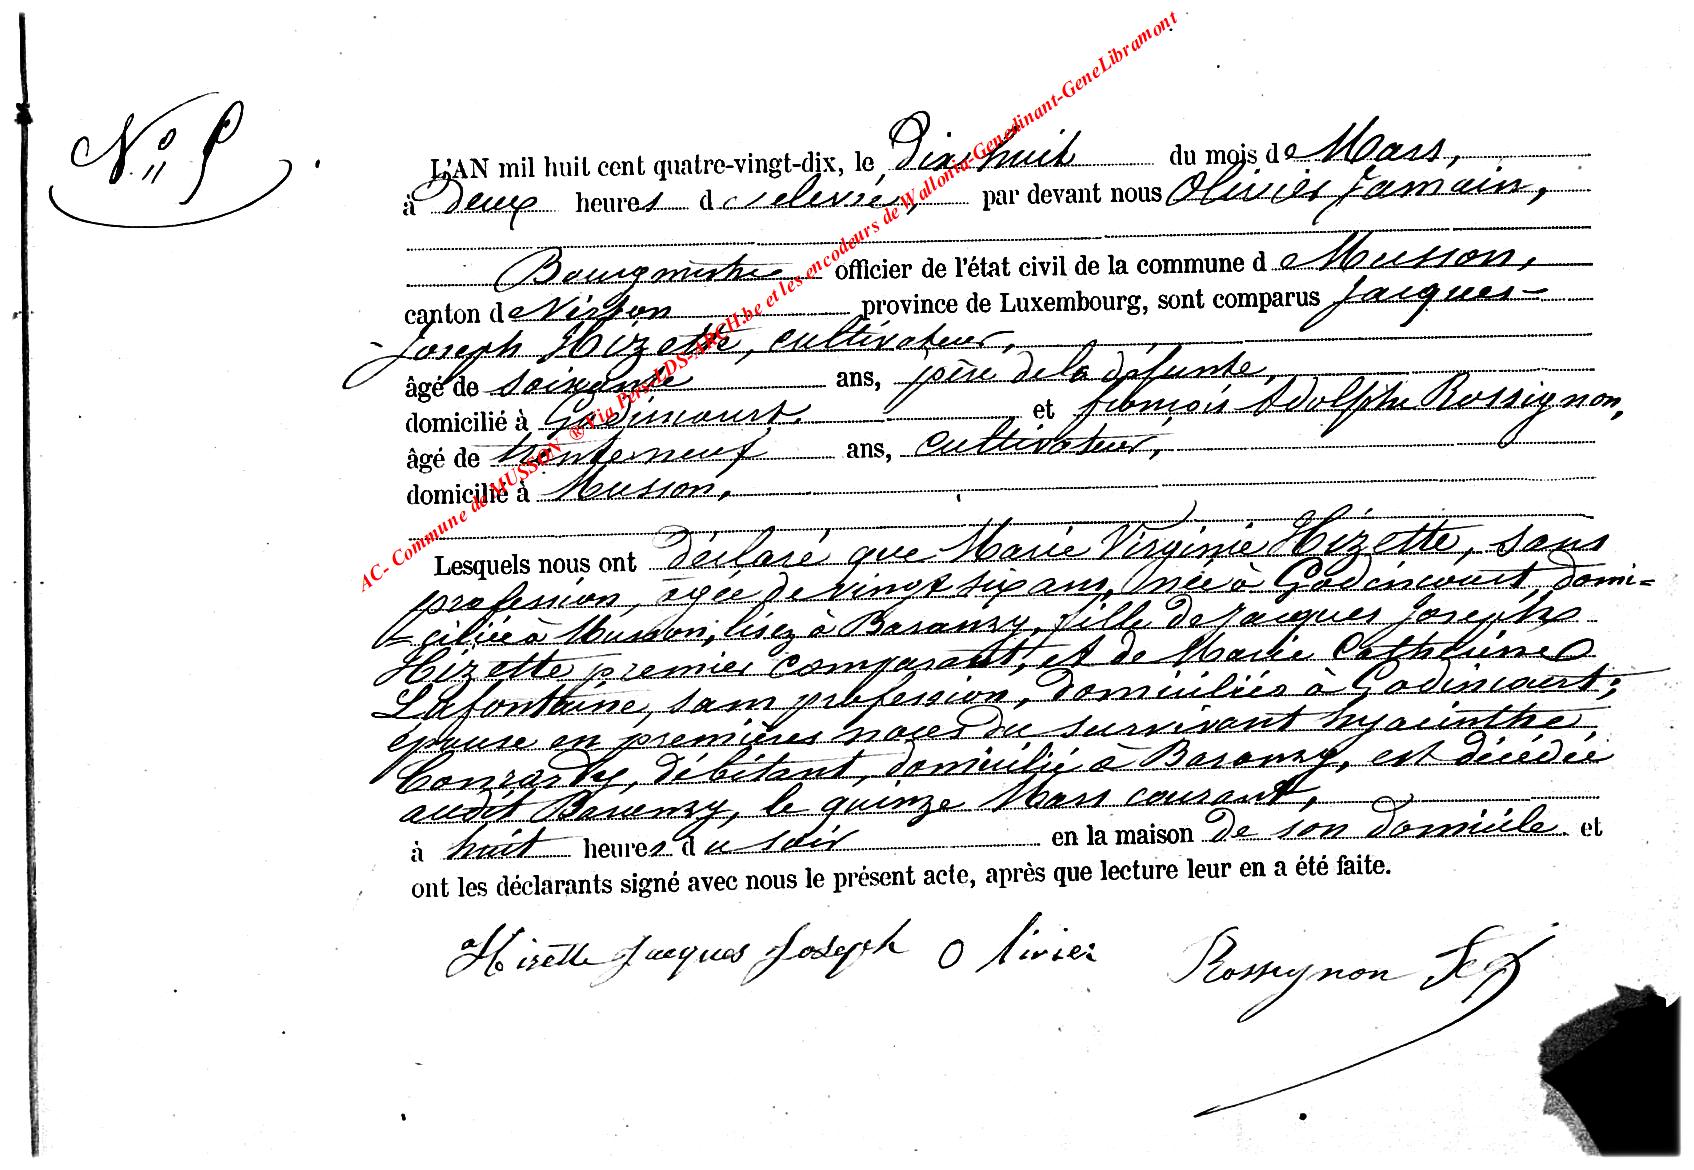 N° 5
L'AN mil huit cent quatre-vingt-dix, le Dix huit du mois de Mars,
à Deux heures de relevée, par devant nous Olivier Jamain,
Bourgmestre officier de l'état civil de la commune de Musson,
canton de Virton province de Luxembourg, sont comparus Jacques-
Joseph Hizette, cultivateur,
âgé de soixante ans, père de la défunte,
domicilié à Godincourt, et françois Adolphe Rossignon,
âgé de trente neuf ans, cultivateur,
domicilié à Musson,
Lesquels nous ont déclaré que Marie Virginie Hizette, sans
profession, âgée de vingt six ans, née à Godincourt, domi=
ciliée à Musson, lisez à Baranzy, fille de Jacques Joseph
Hizette premier comparant, et de Marie Catherine
Lafontaine, sans profession, domiciliés à Godincourt;
épouse en premières noces du survivant hyacinthe
Conrardy, débitant, domicilié à Baranzy, est décédée
audit Baranzy, le quinze Mars courant,
à huit heures du soir en la maison de son domicile et
ont les déclarants signé avec nous le présent acte, après que lecture leur en a été faite.
Hizette Jacques Joseph O livier Rossignon
AC- Commune de MUSSON ® Via Pers-LDS-ARCH.be et les encodeurs de Wallonia-Genedinant-GeneLibramont